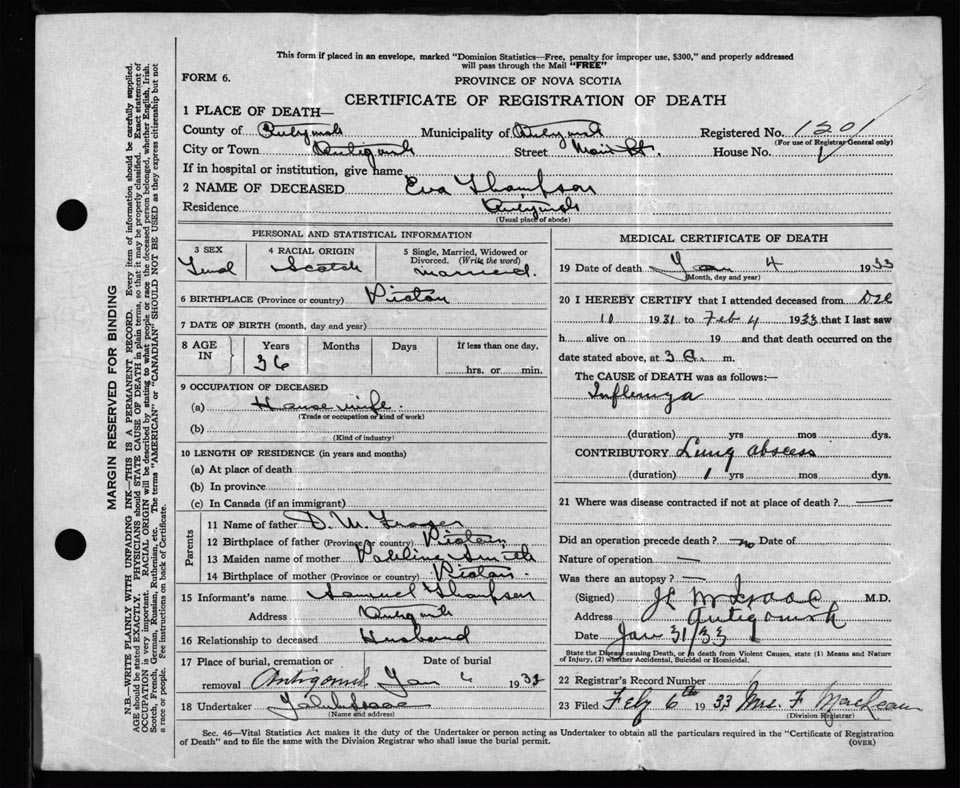 This form if placed in an envelope, marked "Dominion Statistics—Free, penalty for improper use, $300," and properly addressed
will pass through the Mail "FREE"
FORM 6.
PROVINCE OF NOVA SCOTIA
CERTIFICATE OF REGISTRATION OF DEATH
1 PLACE OF DEATH—
County of Antigonish Municipality of Antigonish Registered No. 1201
(For use of Registrar General only)
City or Town Antigonish Street Main St. House No.
If in hospital or institution, give name
2 NAME OF DECEASED Eva Thompson
Residence Antigonish
(Usual place of abode)
PERSONAL AND STATISTICAL INFORMATION
3 SEX 4 RACIAL ORIGIN 5 Single, Married, Widowed or Divorced. (Write the word)
Femal Scotch Married.
6 BIRTHPLACE (Province or country) Pictou
7 DATE OF BIRTH (month, day and year)
8 AGE IN Years Months Days If less than one day.
36 hrs. or min.
9 OCCUPATION OF DECEASED
(a) House wife.
(Trade or occupation or kind of work)
(b)
(Kind of industry)
10 LENGTH OF RESIDENCE (in years and months)
(a) At place of death
(b) In province
(c) In Canada (if an immigrant)
Parents
11 Name of father D. M. Fraser
12 Birthplace of father (Province or country) Pictou
13 Maiden name of mother Smith
14 Birthplace of mother (Province or country) Pictou.
15 Informant's name Samuel Thompson
Address Antigonish
16 Relationship to deceased Husband
17 Place of burial, cremation or removal Antigonish Date of burial Jan 6 193
18 Undertaker
(Name and address)
MEDICAL CERTIFICATE OF DEATH
19 Date of death Jan 4 1933
(Month, day and year)
20 I HEREBY CERTIFY that I attended deceased from Dec
10 1931 to Feb 4 1933 that I last saw
h alive on 19 and that death occurred on the
date stated above, at 3 a. m.
The CAUSE OF DEATH was as follows:—
Influenza
(duration) yrs mos dys.
CONTRIBUTORY Lung abscess
(duration) 1 yrs mos dys.
21 Where was disease contracted if not at place of death?
Did an operation precede death? no Date of
Nature of operation —
Was there an autopsy? —
(Signed) M.D.
Address Antigonish
Date Jan 31/33
State the Disease causing Death, or in death from Violent Causes, state (1) Means and Nature
of Injury, (2) whether Accidental, Suicidal or Homicidal.
22 Registrar's Record Number
23 Filed Feby 6th 1933 Mrs. F MacLean
(Division Registrar)
Sec. 46—Vital Statistics Act makes it the duty of the Undertaker or person acting as Undertaker to obtain all the particulars required in the "Certificate of Registration
of Death" and to file the same with the Division Registrar who shall issue the burial permit.
(OVER)
MARGIN RESERVED FOR BINDING
N.B.—WRITE PLAINLY WITH UNFADING INK—THIS IS A PERMANENT RECORD. Every item of information should be carefully supplied.
AGE should be stated EXACTLY. PHYSICIANS should STATE CAUSE OF DEATH in plain terms, so that it may be properly classified. Exact statement of
OCCUPATION is very important. RACIAL ORIGIN will be described by stating to what people or race the deceased person belonged, whether English, Irish,
Scotch, French, German, Russian, Ruthenian, etc. The terms "AMERICAN" or "CANADIAN" SHOULD NOT BE USED as they express citizenship but not
a race or people. Fee instructions on back of Certificate.